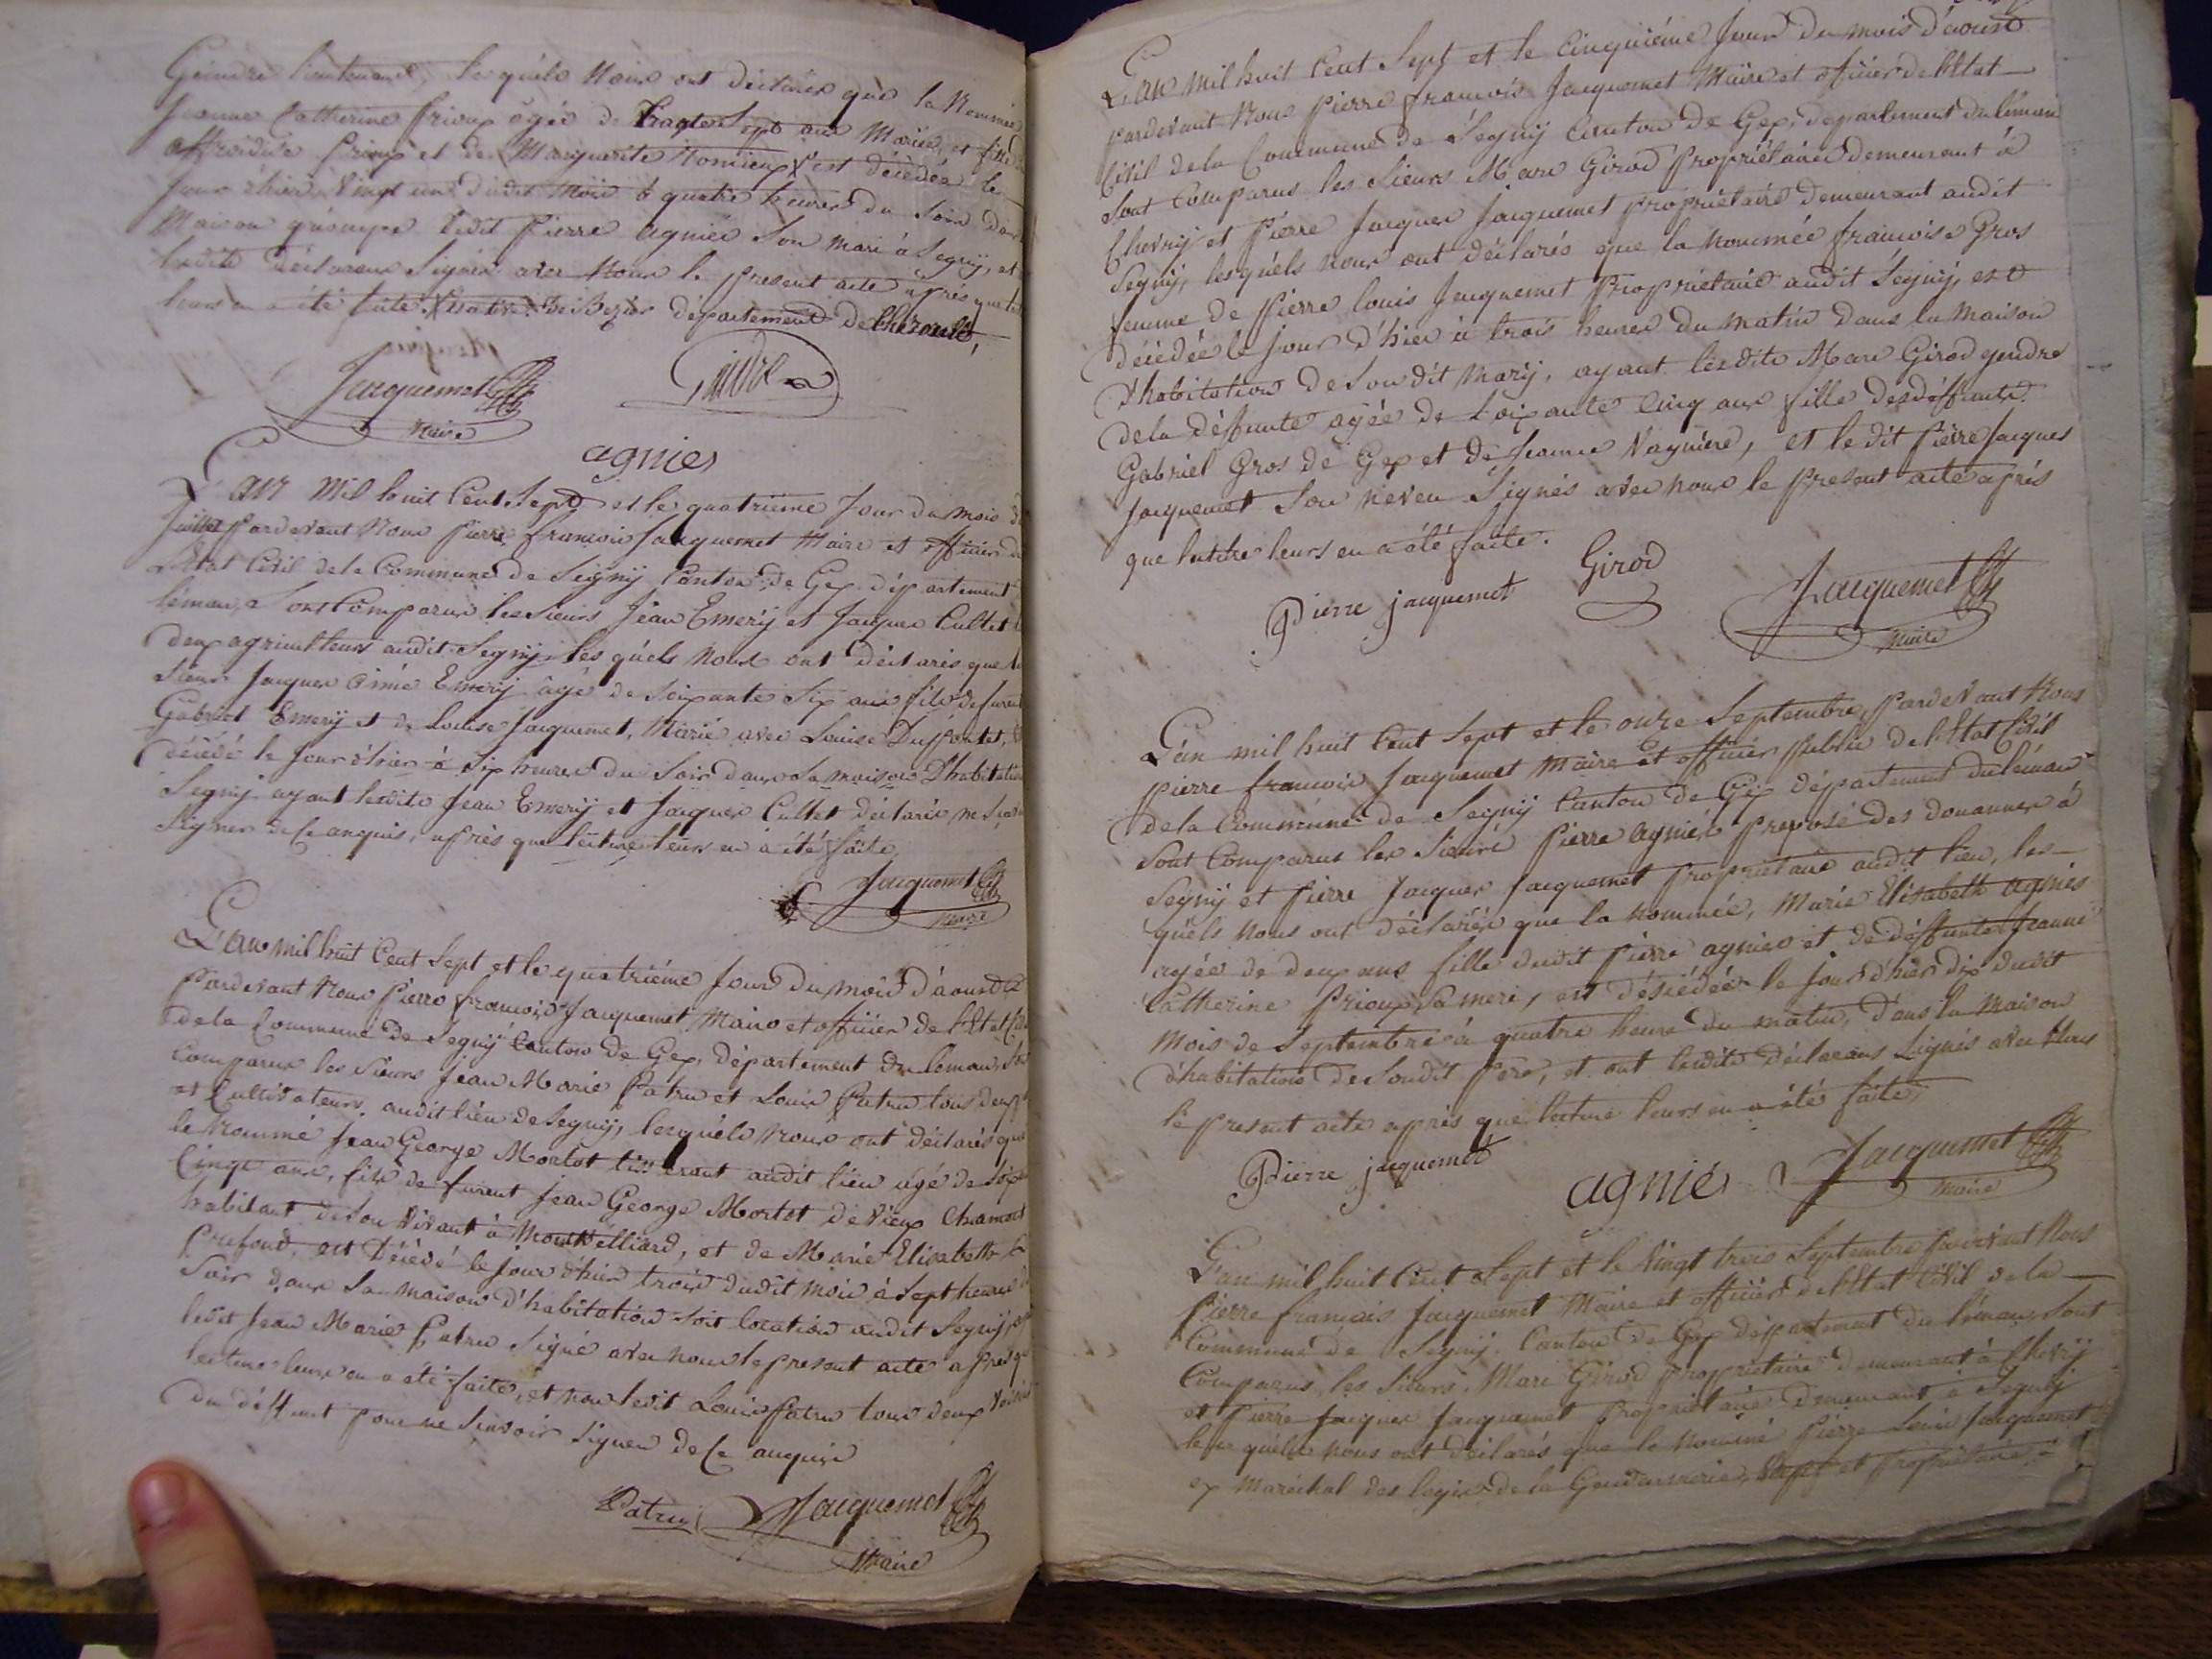 Gendre lieutenant, lesquels Nous ont déclarés que la Nommée
Jeanne Catherine Prioux âgée de trante Sept ans Mariée, et fille
Prioux et de Marguerite est décédée le
Jour d'hier Vingt un dudit Mois à quatre heures du Soir dans
Maison qu'occupe ledit Pierre Agnier Son mari à Segny, et
lesdits déclarans Signés avec Nous le present acte après que
leurs en a été faite. Native de Beziers département de l'hérault,
Jacquemet
Maire
agnier
L'an Mil huit Cent Sept et le quatrième Jour du mois de
Juillet Pardevant Nous Pierre François Jacquemet Maire et officier de
L'Etat Civil de la Commune de Segny Canton de Gex département
léman, Sont Comparus les Sieurs Jean Emery et Jacques Cullet
deux agriculteurs audit Segny, lesquéls Nous ont déclarés que le
Sieur Jacques Aimé Emery âgé de Soixante Six ans fils de furent
Gabriel Emery et de Louise Jacquemet, Marié avec Louise Dupontet,
décédé le Jour d'hier à Six heures du Soir dans Sa maison D'habitation
Segny ayant lesdits Jean Emery et Jacques Cullet déclarés ne
Signer de Ce anquis, après que lecture leurs en à été faite,
Jacquemet
Maire
L'an mil huit Cent Sept et le quatriéme Jour du mois d'àoust
Pardevant Nous Pierre François Jacquemet Maire et officier de l'Etat
de la Commune de Segny Canton de Gex, département du léman,
Comparus les Sieurs Jean Marie Patru et Louis Patru tous deux
et Cultivateurs audit lieu de Segny, lesquéls Nous ont déclarés que
le Nommé Jean George Mortot audit lieu âgé de
Cinqt ans, fils de furent Jean George Mortot de Vieux Chamont
habitant de Son Vivant à Montbelliard, et de Marie Elisabeth
est Décédé le jour d'hier trois dudit Mois à Sept heures
Soir dans Sa maison d'habitation Soit location audit Segny,
ledit Jean Marie Patru Signé avec nous le present acte après que
lecture leurs en a été faite, et non ledit Louis Patru tous deux Voisins
du déffunt pour ne Sçavoir Signer de Ce anquis
Patru
Jacquemet
Maire
L'an Mil huit Cent Sept et le Cinquiéme Jour du mois d'aoust
pardevant Nous Pierre François Jacquemet Maire et officier de l'Etat
Civil de la Commune de Segny Canton de Gex, département du léman
Sont Comparus les Sieurs Marc Girod Propriétaire demeurant à
Chevry et Pierre Jacques Jacquemet propriétaire demeurant audit
Segny, lesquéls nous ont déclarés que la Nommée françoise Gros
femme de Pierre louis Jacquemet Propriétaire audit Segny, est
décédée le Jour d'hier à trois heures du matin dans la maison
d'habitation de Son dit Mary, ayant lesdits Marc Girod gendre
de la déffunte agée de Soixante Cinq ans fille des déffunts
Gabriel Gros de Gex et de Jeanne Vagniere, et ledit Pierre Jacques
Jacquemet Son neveu Signés avec nous le present acte après
que lecture leurs en a été faite.
Pierre jacquemet
Girod
Jacquemet
Maire
L'an mil huit Cent Sept et le onze Septembre, Pardevant Nous
pierre françois Jacquemet Maire et officier Public de l'Etat Civil
de la Commune de Segny Canton de Gex département du léman
Sont Comparus les Sieurs Pierre agnier preposé des douannes à
Segny et Pierre Jacques Jacquemet propriétaire audit lieu, les-
quéls Nous ont déclarés que la nommée, Marie Elisabeth agnier
agée de deux ans fille dudit Pierre agnier et de déffunte Jeanne
Catherine Prioux Sa mere, est désiédée le Jour d'hier dix dudit
Mois de Septembre à quatre heure du matin, dans la Maison
d'habitation de Soudit Pere, et ont lesdits déclarans Signés avec Nous
le present acte après que lecture leurs en a été faite,
Pierre jacquemet
agnier
Jacquemet
Maire
L'an mil huit Cent Sept et le Vingt trois Septembre Pardevant Nous
Pierre françois Jacquemet Maire et officier de l'Etat Civil de la
Commune de Segny Canton de Gex département du léman, Sont
Comparus, les Sieurs Marc Girod propriétaire demeurant à Chevry
et Pierre Jacques Jacquemet Propriétaire demeurant à Segny
lesquéls nous ont déclarés que le nommé Pierre Louis Jacquemet
ex Maréchal des logis de la Gendarmerie, et Propriétaire à